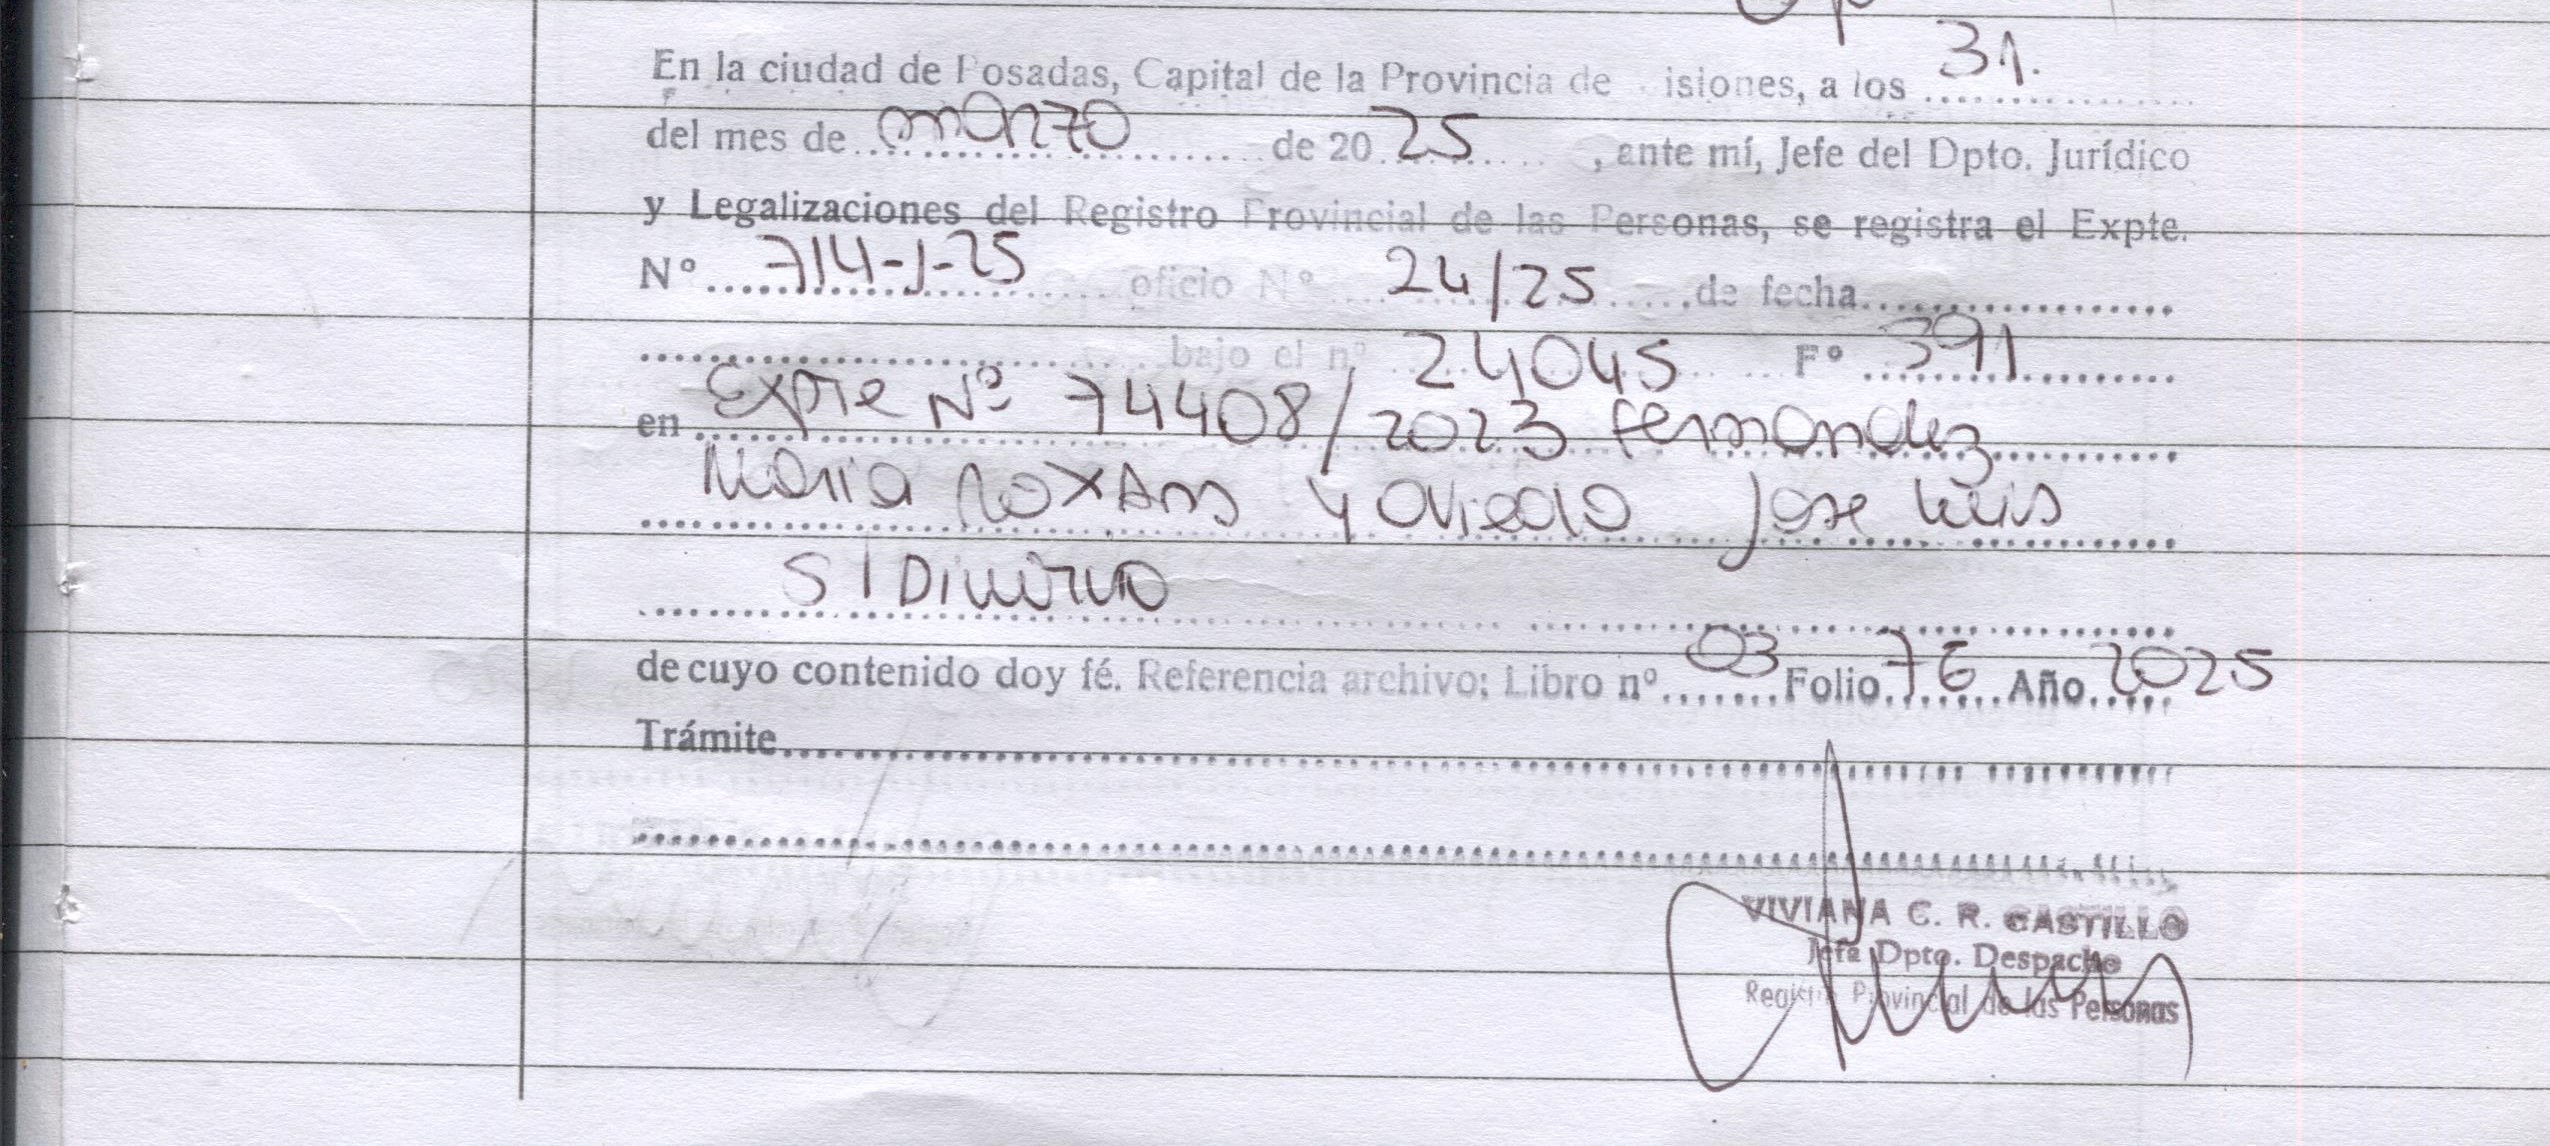 En la ciudad de Posadas, Capital de la Provincia de isiones, a los 31.
del mes de marzo de 2025, ante mí, Jefe del Dpto. Jurídico
y Legalizaciones del Registro Provincial de las Personas, se registra el Expte.
Nº 714-J-25 oficio Nº 24/25 de fecha
bajo el nº 24045 Fº 391
en Expte Nº 74408/2023 Fernandez
Maria Roxana y Oviedo Jose Luis
S/Divorcio
de cuyo contenido doy fé. Referencia archivo: Libro nº 03 Folio 76 Año 2025
Trámite
VIVIANA C. R. CASTILLO
Jefa Dpto. Despacho
Registro Provincial de las Personas